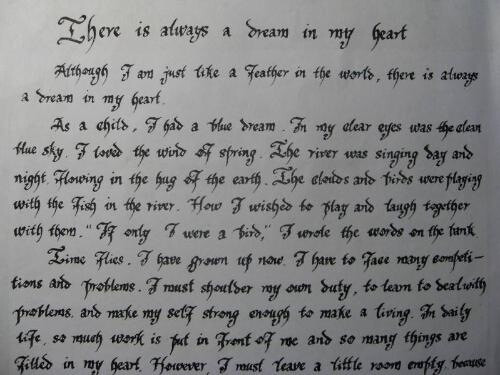 There is always a dream in my heart
Although I am just like a feather in the world, there is always
a dream in my heart.
As a child, I had a blue dream. In my clear eyes was the clean
blue sky. I loved the wind of spring. The river was singing day and
night, flowing in the hug of the earth. The clouds and birds were playing
with the fish in the river. How I wished to play and laugh together
with them. "If only I were a bird," I wrote the words on the tank.
Time flies. I have grown up now. I have to face many competi-
tions and problems. I must shoulder my own duty, to learn to deal with
problems, and make my self strong enough to make a living. In daily
life, so much work is put in front of me and so many things are
filled in my heart. However, I must leave a little room empty, because